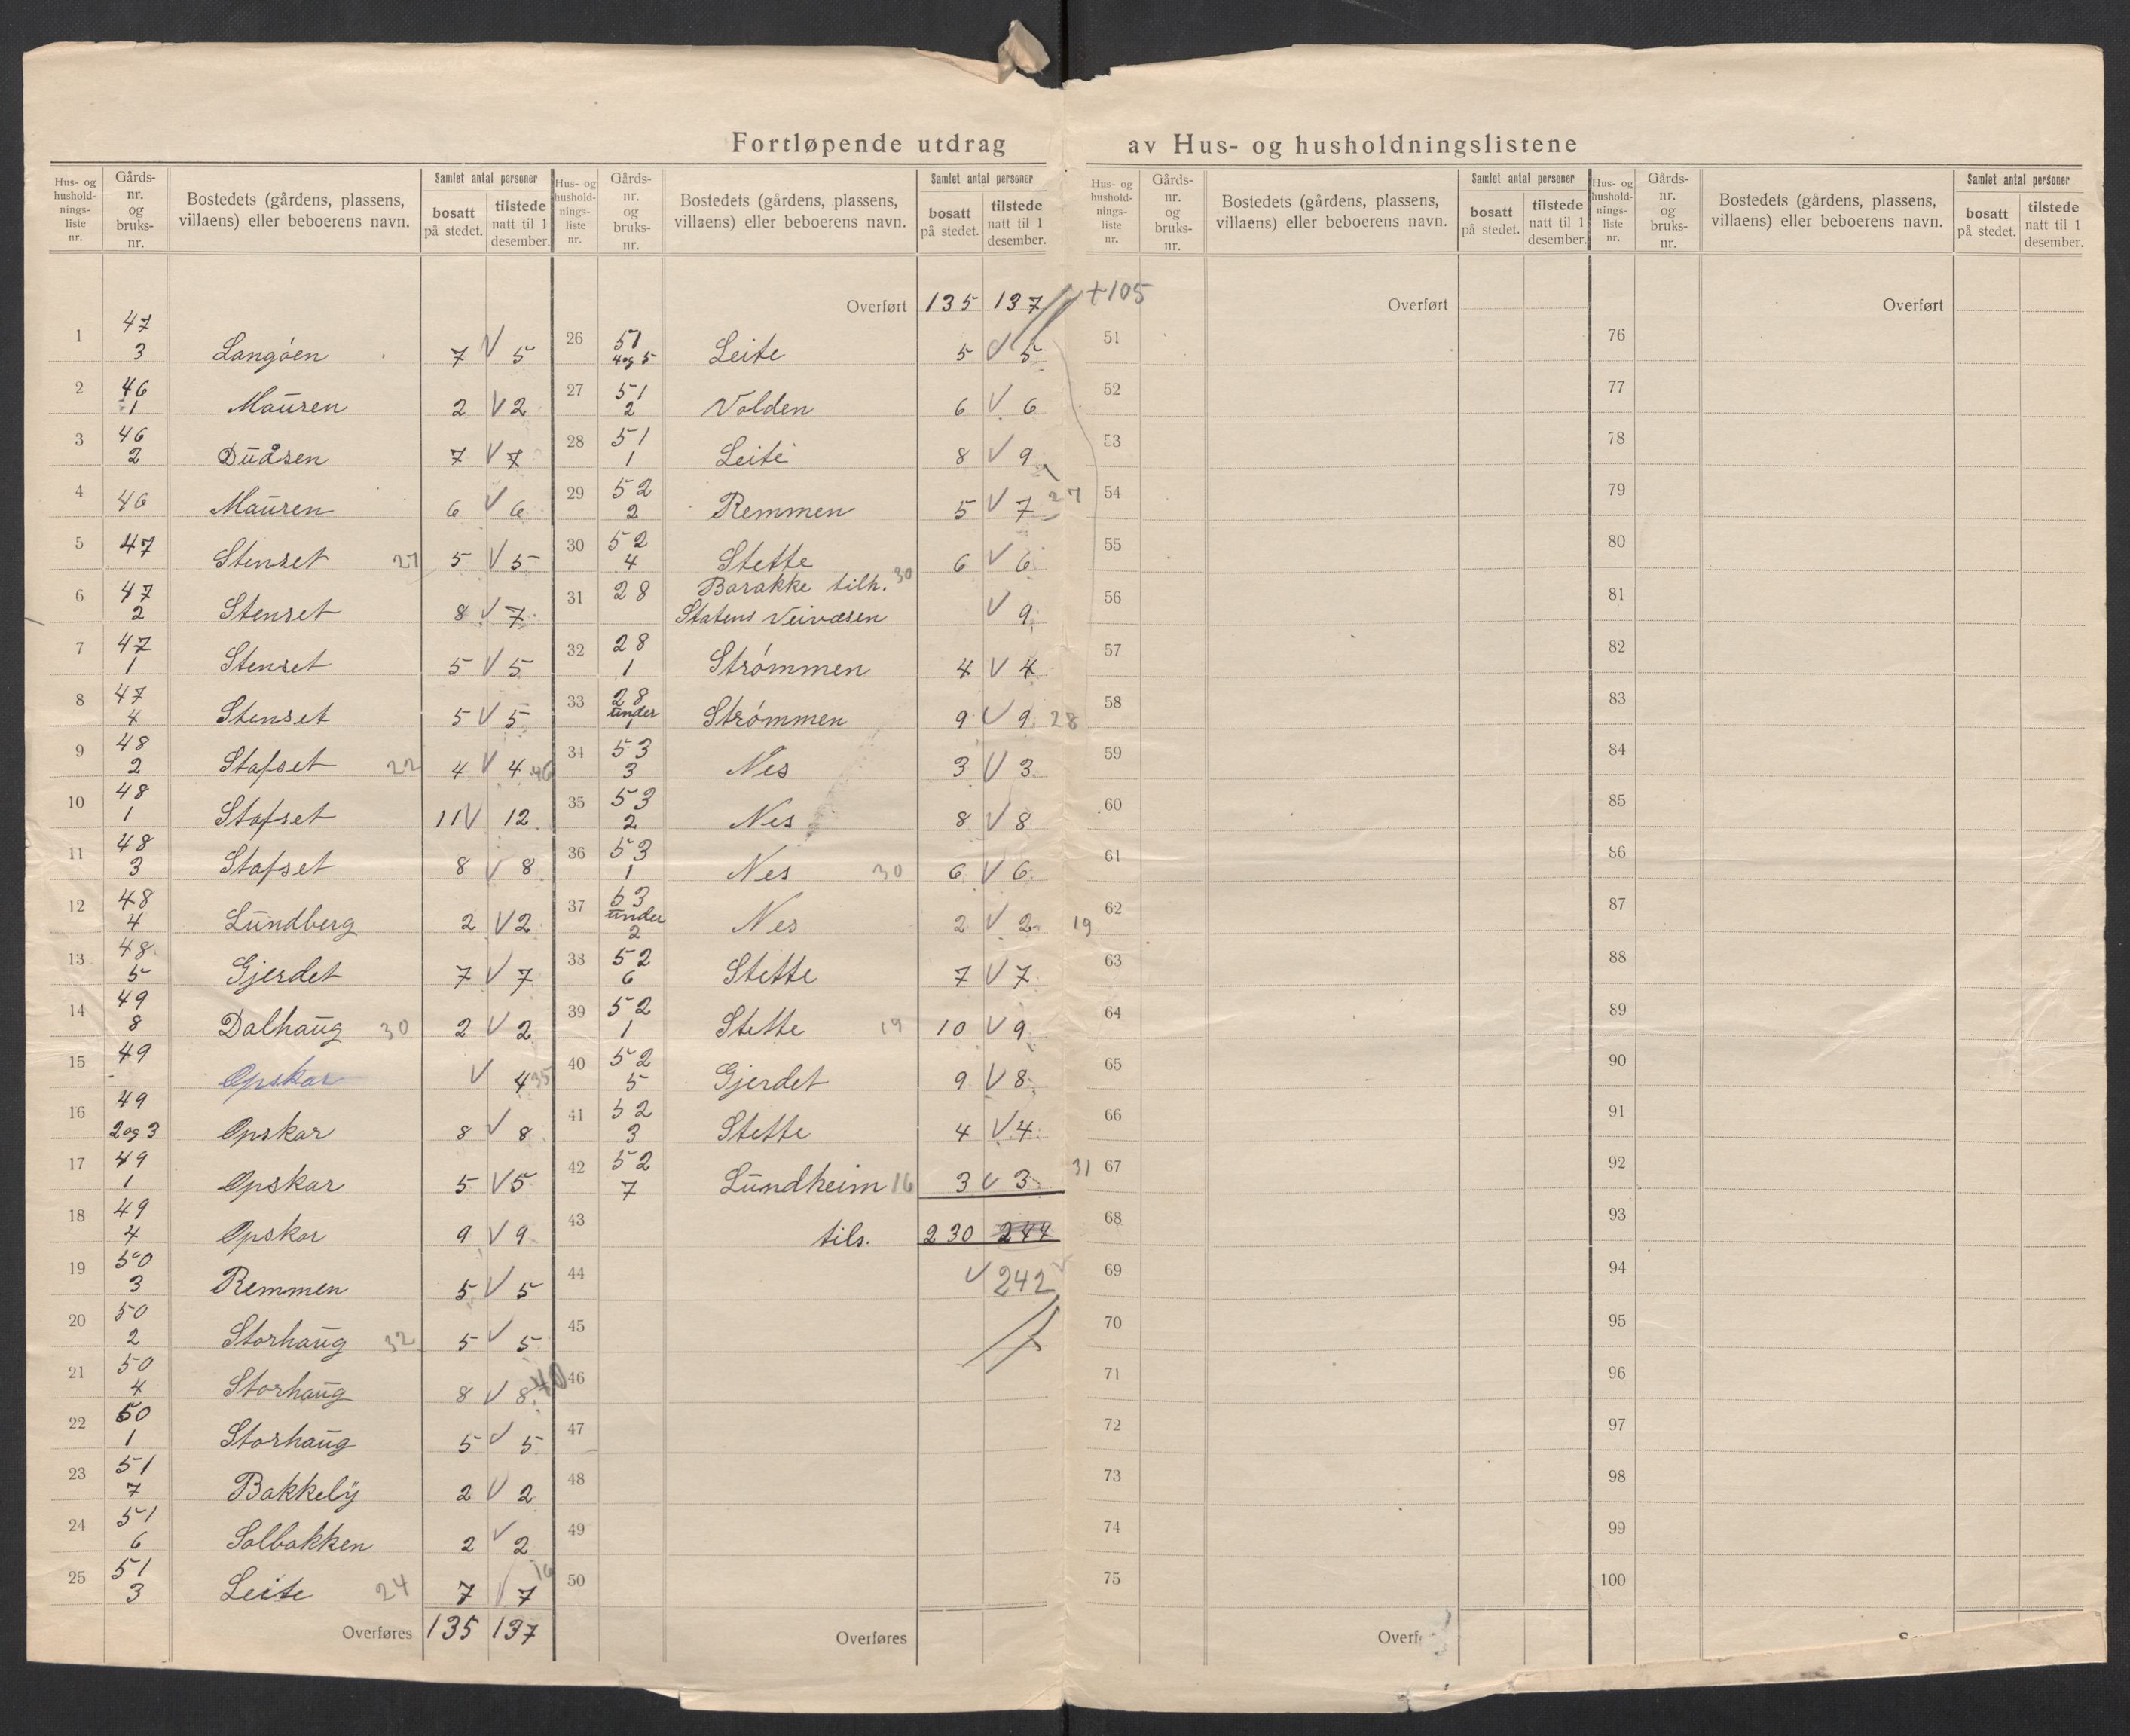 Fortløpende utdrag av Hus- og husholdningslistene
Hus- og hushold-nings-liste nr. Gårds-nr. og bruks-nr. Bostedets (gårdens, plassens, villaens) eller beboerens navn. Samlet antal personer bosatt på stedet. tilstede natt til 1 desember.
1 47 3 Langøen 7 V 5
2 46 1 Mauren 2 V 2
3 46 2 Duåsen 7 V 7
4 46 Mauren 6 V 6
5 47 Stenset 27 5 V 5
6 47 2 Stenset 8 V 7
7 47 1 Stenset 5 V 5
8 47 4 Stenset 5 V 5
9 48 2 Stafset 22 4 V 4 46
10 48 1 Stafset 11 V 12
11 48 3 Stafset 8 V 8
12 48 4 Lundberg 2 V 2
13 48 5 Gjerdet 7 V 7
14 49 8 Dalhaug 30 2 V 2
15 49 - Opskar V 4 35
16 49 2 og 3 Opskar 8 V 8
17 49 1 Opskar 5 V 5
18 49 4 Opskar 9 V 9
19 50 3 Remmen 5 V 5
20 50 2 Storhaug 32 5 V 5
21 50 4 Storhaug 8 V 8 40
22 50 1 Storhaug 5 V 5
23 51 7 Bakkely 2 V 2
24 51 6 Solbakken 2 V 2
25 51 3 Leite 24 7 V 7 16
Overføres 135 137
Hus- og hushold-nings-liste nr. Gårds-nr. og bruks-nr. Bostedets (gårdens, plassens, villaens) eller beboerens navn. Samlet antal personer bosatt på stedet. tilstede natt til 1 desember.
Overført 135 137 +105
26 51 4 og 5 Leite 5 V 5
27 51 2 Volden 6 V 6
28 51 1 Leite 8 V 9
29 52 2 Remmen 5 V 7 27
30 52 4 Stette 6 V 6
31 28 Barakke tilh. 30
Statens Veivæsen V 9
32 28 1 Strømmen 4 V 4
33 28 under 1 Strømmen 9 V 9 28
34 53 3 Nes 3 V 3
35 53 2 Nes 8 V 8
36 53 1 Nes 30 6 V 6
37 53 under 2 Nes 2 V 2 19
38 52 6 Stette 7 V 7
39 52 1 Stette 19 10 V 9
40 52 5 Gjerdet 9 V 8
41 52 3 Stette 4 V 4
42 52 7 Lundheim 16 3 V 3 31
43 tils. 230 244
44 V 242
45
46
47
48
49
50
Overføres
Hus- og hushold-nings-liste nr. Gårds-nr. og bruks-nr. Bostedets (gårdens, plassens, villaens) eller beboerens navn. Samlet antal personer bosatt på stedet. tilstede natt til 1 desember.
Overført
51
52
53
54
55
56
57
58
59
60
61
62
63
64
65
66
67
68
69
70
71
72
73
74
75
Overf
Hus- og hushold-nings-liste nr. Gårds-nr. og bruks-nr. Bostedets (gårdens, plassens, villaens) eller beboerens navn. Samlet antal personer bosatt på stedet. tilstede natt til 1 desember.
Overført
76
77
78
79
80
81
82
83
84
85
86
87
88
89
90
91
92
93
94
95
96
97
98
99
100